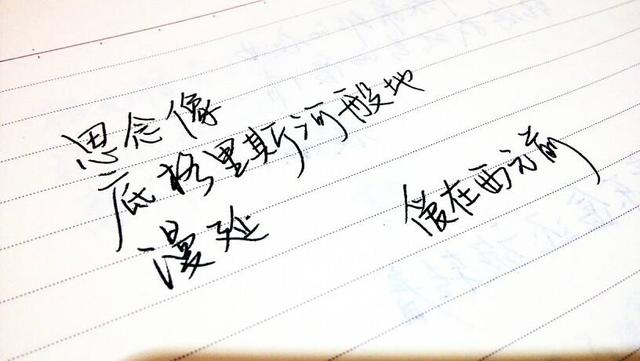 思念像
底格里斯河般地
漫延
爱在西元前